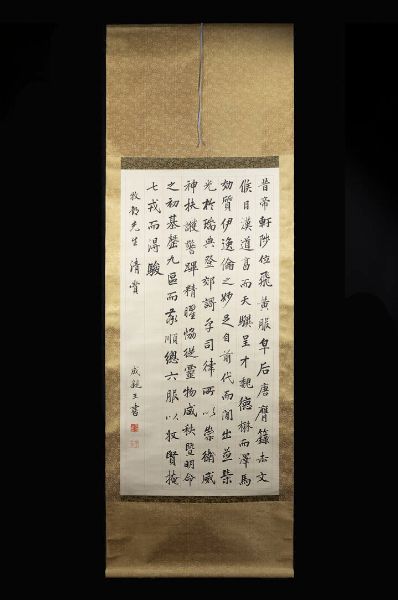 昔帝軒陟位飛黃服皁后唐膺籙赤文
候日漢道亨而天驥呈才魏德楙而澤馬
効質伊逸倫之妙足自前代而間出並榮
光於瑞典登郊謌乎司律所以崇衛威
神扶護警蹕精曜協從靈物咸秩暨明命
之初基罄九區而率順總六服以收賢掩
七戎而得駿
牧 先生清賞
成親王書